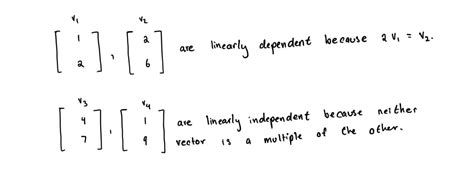 v₁ v₂
[1 2], [2 6] are linearly dependent because 2 v₁ = v₂.
v₃ v₄
[4 7], [1 9] are linearly independent because neither
vector is a multiple of the other.